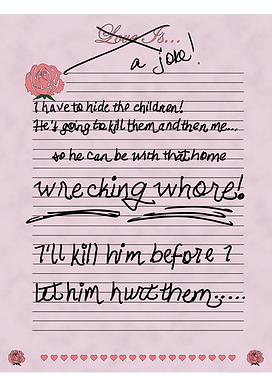 Love Is...
a joke!
I have to hide the children!
He's going to kill them and then me...
so he can be with that home
wrecking whore!
I'll kill him before I
let him hurt them.....